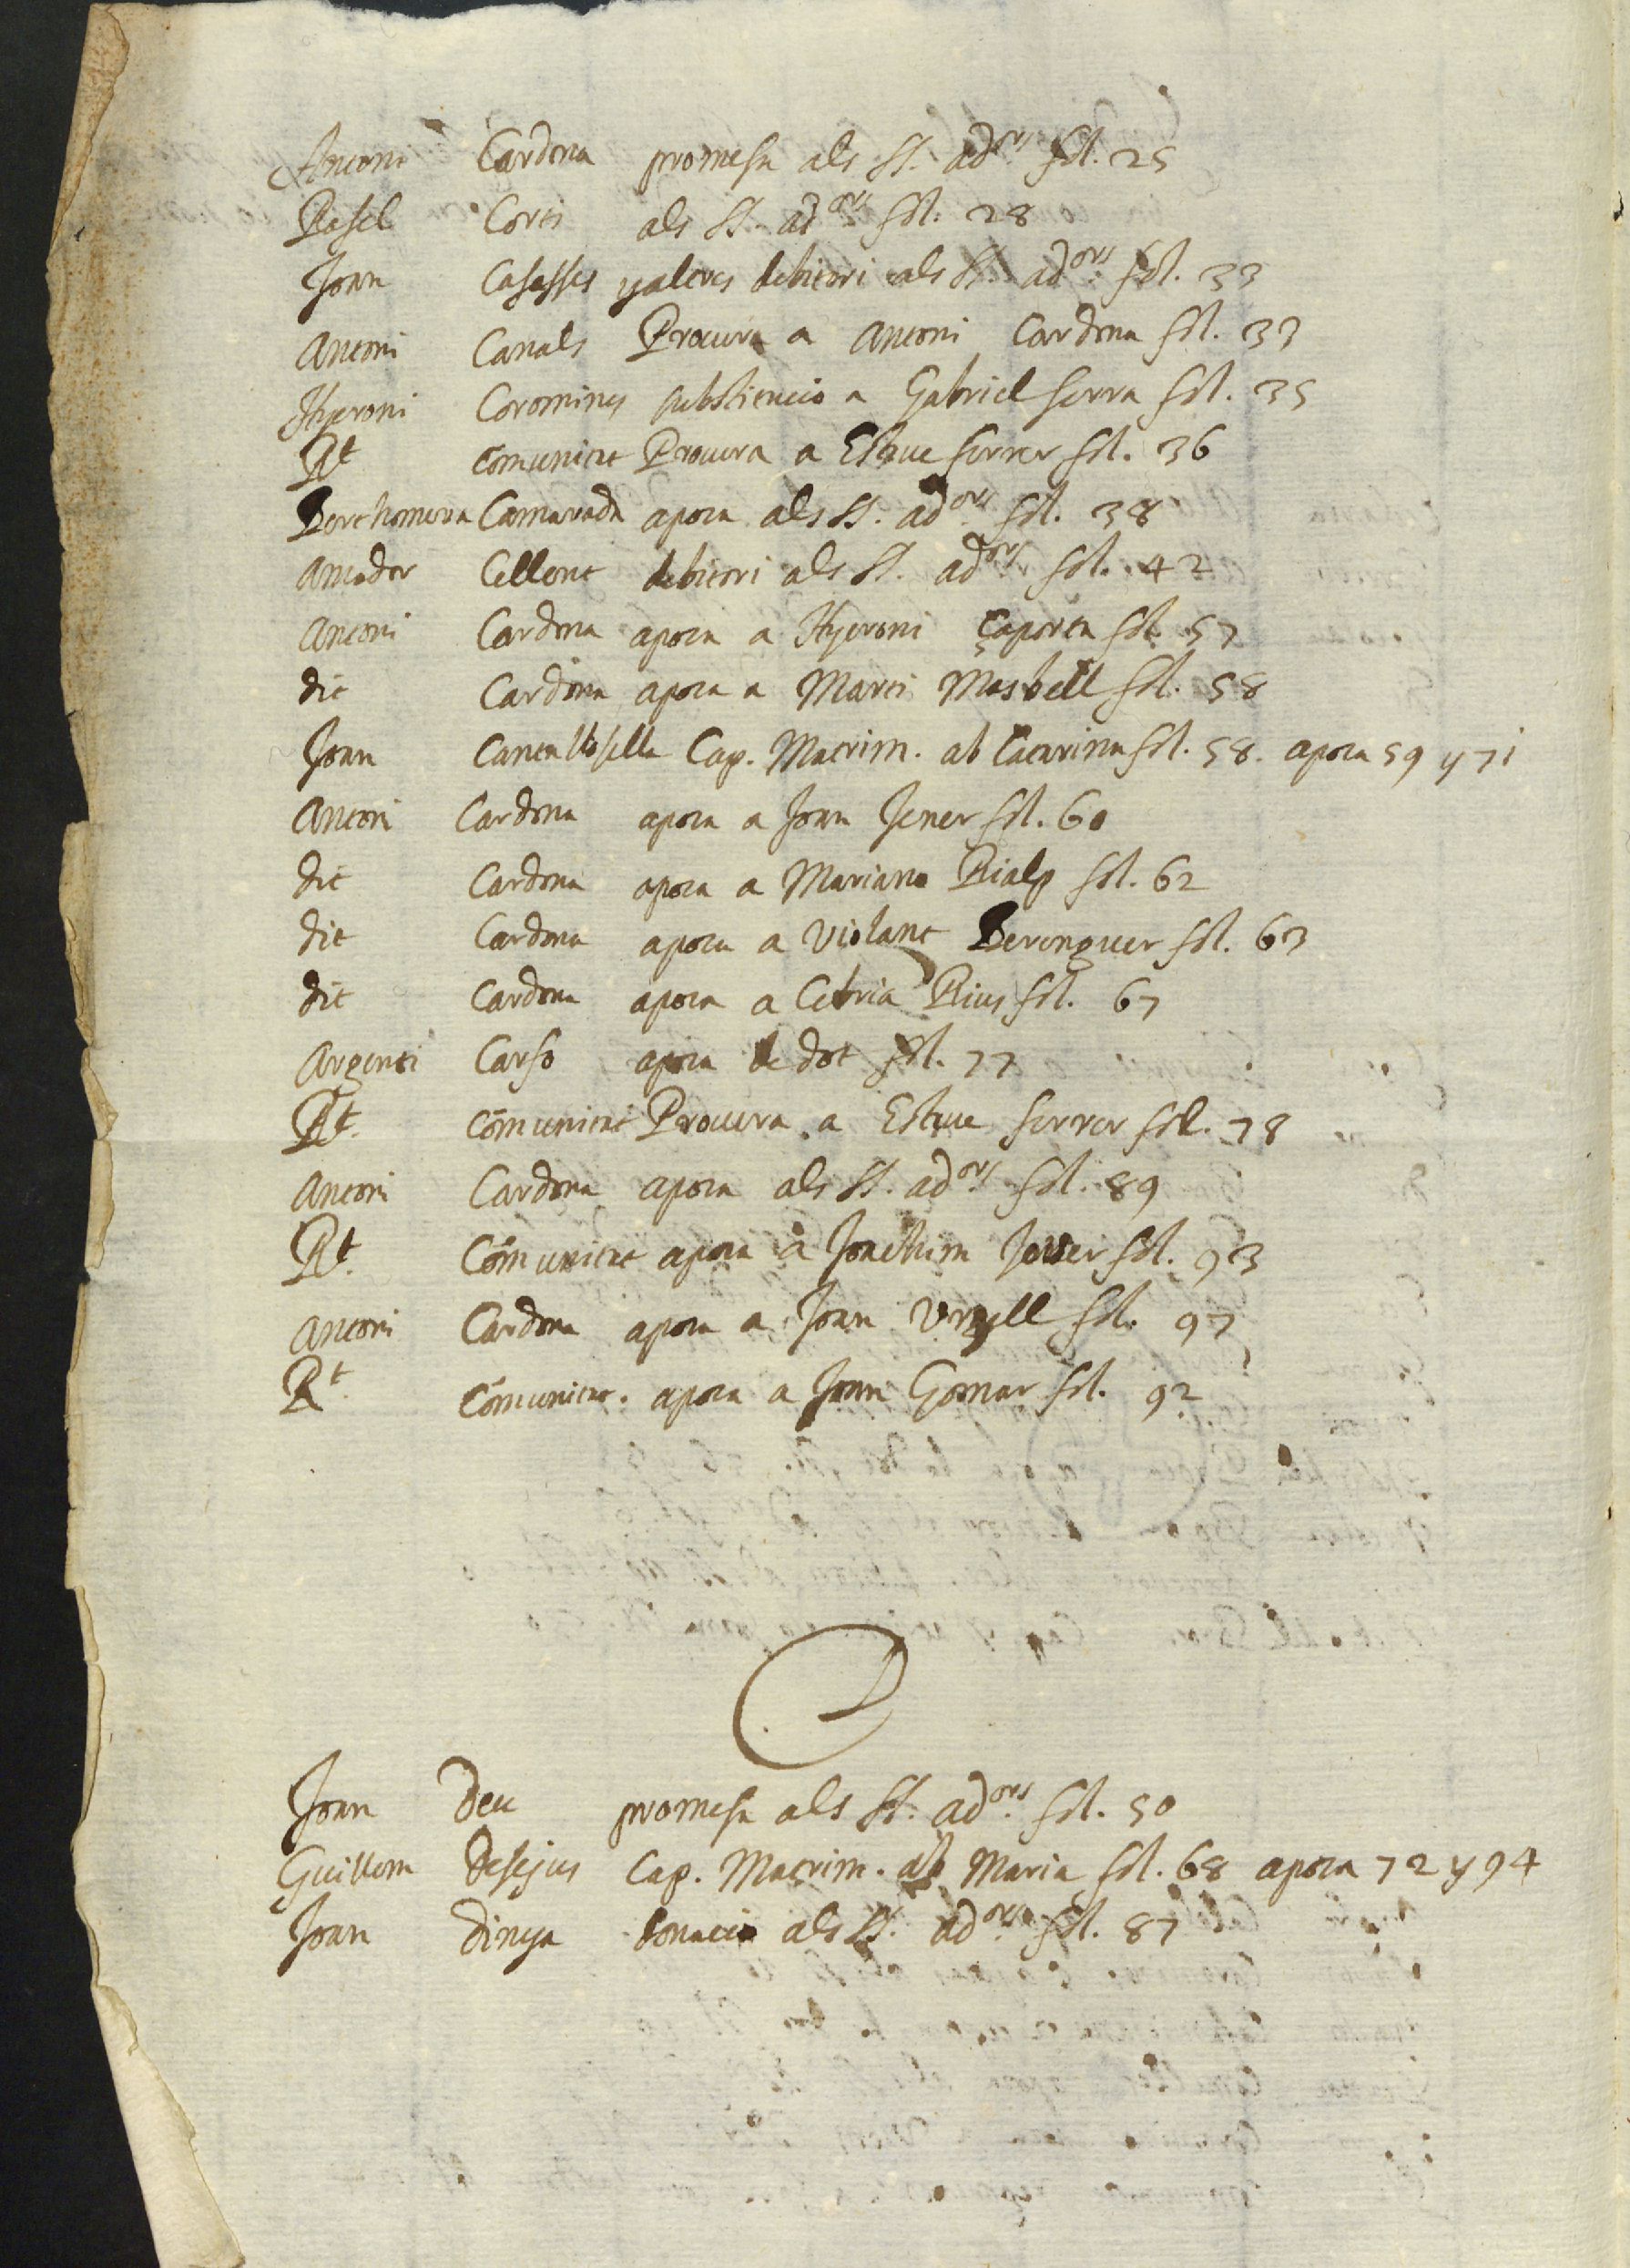 Antoni Cardona promesa als SS. ad.ors fol. 25
Rafel Cortes als SS. ad.ors fol. 28
Joan Casasses y altres debitori als SS. ad.ors fol. 33
Antoni Canals Procura a Antoni Cardona fol. 33
Hyeroni Coromines substitucio a Gabriel Serra fol. 35
Rt Comunitat Procura a Esteve ferrer fol. 36
Berthomeva Camarada apoca als SS. ad.ors fol. 38
Amador Cellent debitori als SS. ad.ors fol. 42
Antoni Cardona apoca a Hyeroni Çaporta fol. 57
dit Cardona apoca a Marti Masbell fol. 58
Joan Cantallosella Cap. Matrim. ab Catarina fol. 58. apoca 59 y 71
Antoni Cardona apoca a Joan Jener fol. 60
dit Cardona apoca a Mariano Rialp fol. 62
dit Cardona apoca a Violant Berenguer fol. 63
dit Cardona apoca a Cebria Rius fol. 67
Argenti Carso apoca de dot fol. 77
Rt. Cōmunitat Procura a Esteve ferrer fol. 78
Antoni Cardona apoca als SS. ad.ors fol. 89
Rt. Cōmunitat apoca a Joachim Jover fol. 93
Antoni Cardona apoca a Joan Urgell fol. 97
Rt. Cōmunitat. apoca a Joan Gomar fol. 92
D
Joan Deu promesa als SS. ad.ors fol. 50
Guillem Desejus Cap. Matrim. ab Maria fol. 68 apoca 72 y 94
Joan Dinya donacio als SS. ad.ors fol. 87